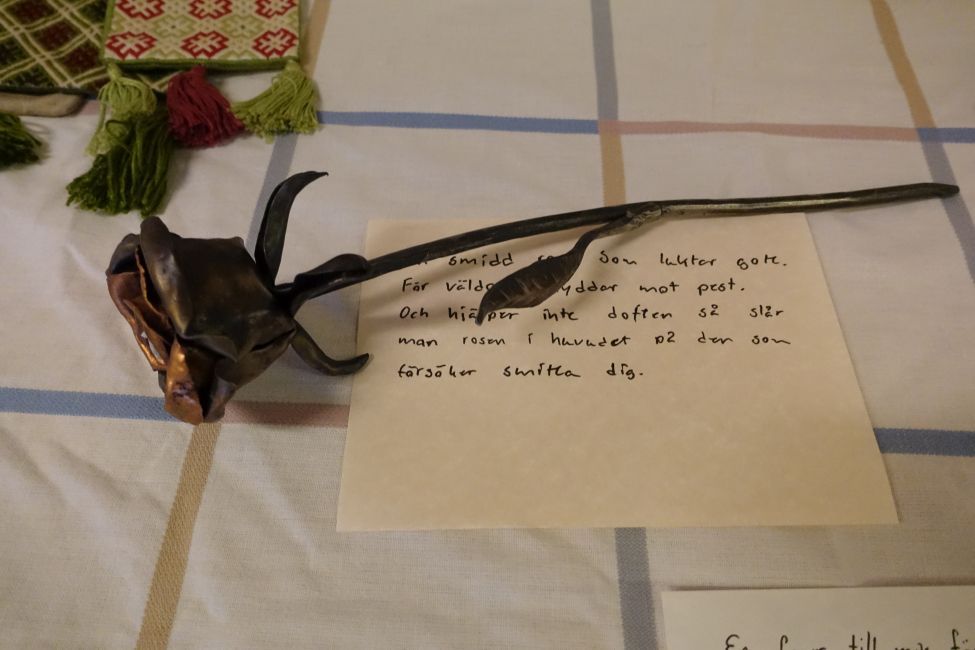 smidd som luktar gott.
För mot pest.
Och hjälper inte doften så slår
man rosen i huvudet på den som
försöker smitta dig.
till